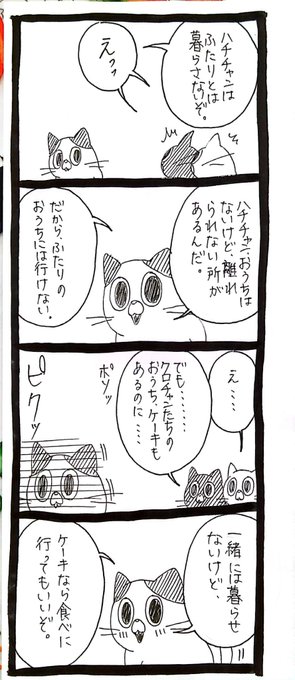 ハチチャンは
ふたりとは
暮らさないぞ。
えっっ
ハチチャン、おうちは
ないけど、離れ
られない所が
あるんだ。
だから、ふたりの
おうちには行けない。
え……
でも………
クロチャンたちの
おうち、ケーキも
あるのに……
ボソッ
ピクッ
一緒には暮らせ
ないけど、
ケーキなら食べに
行ってもいいぞ。